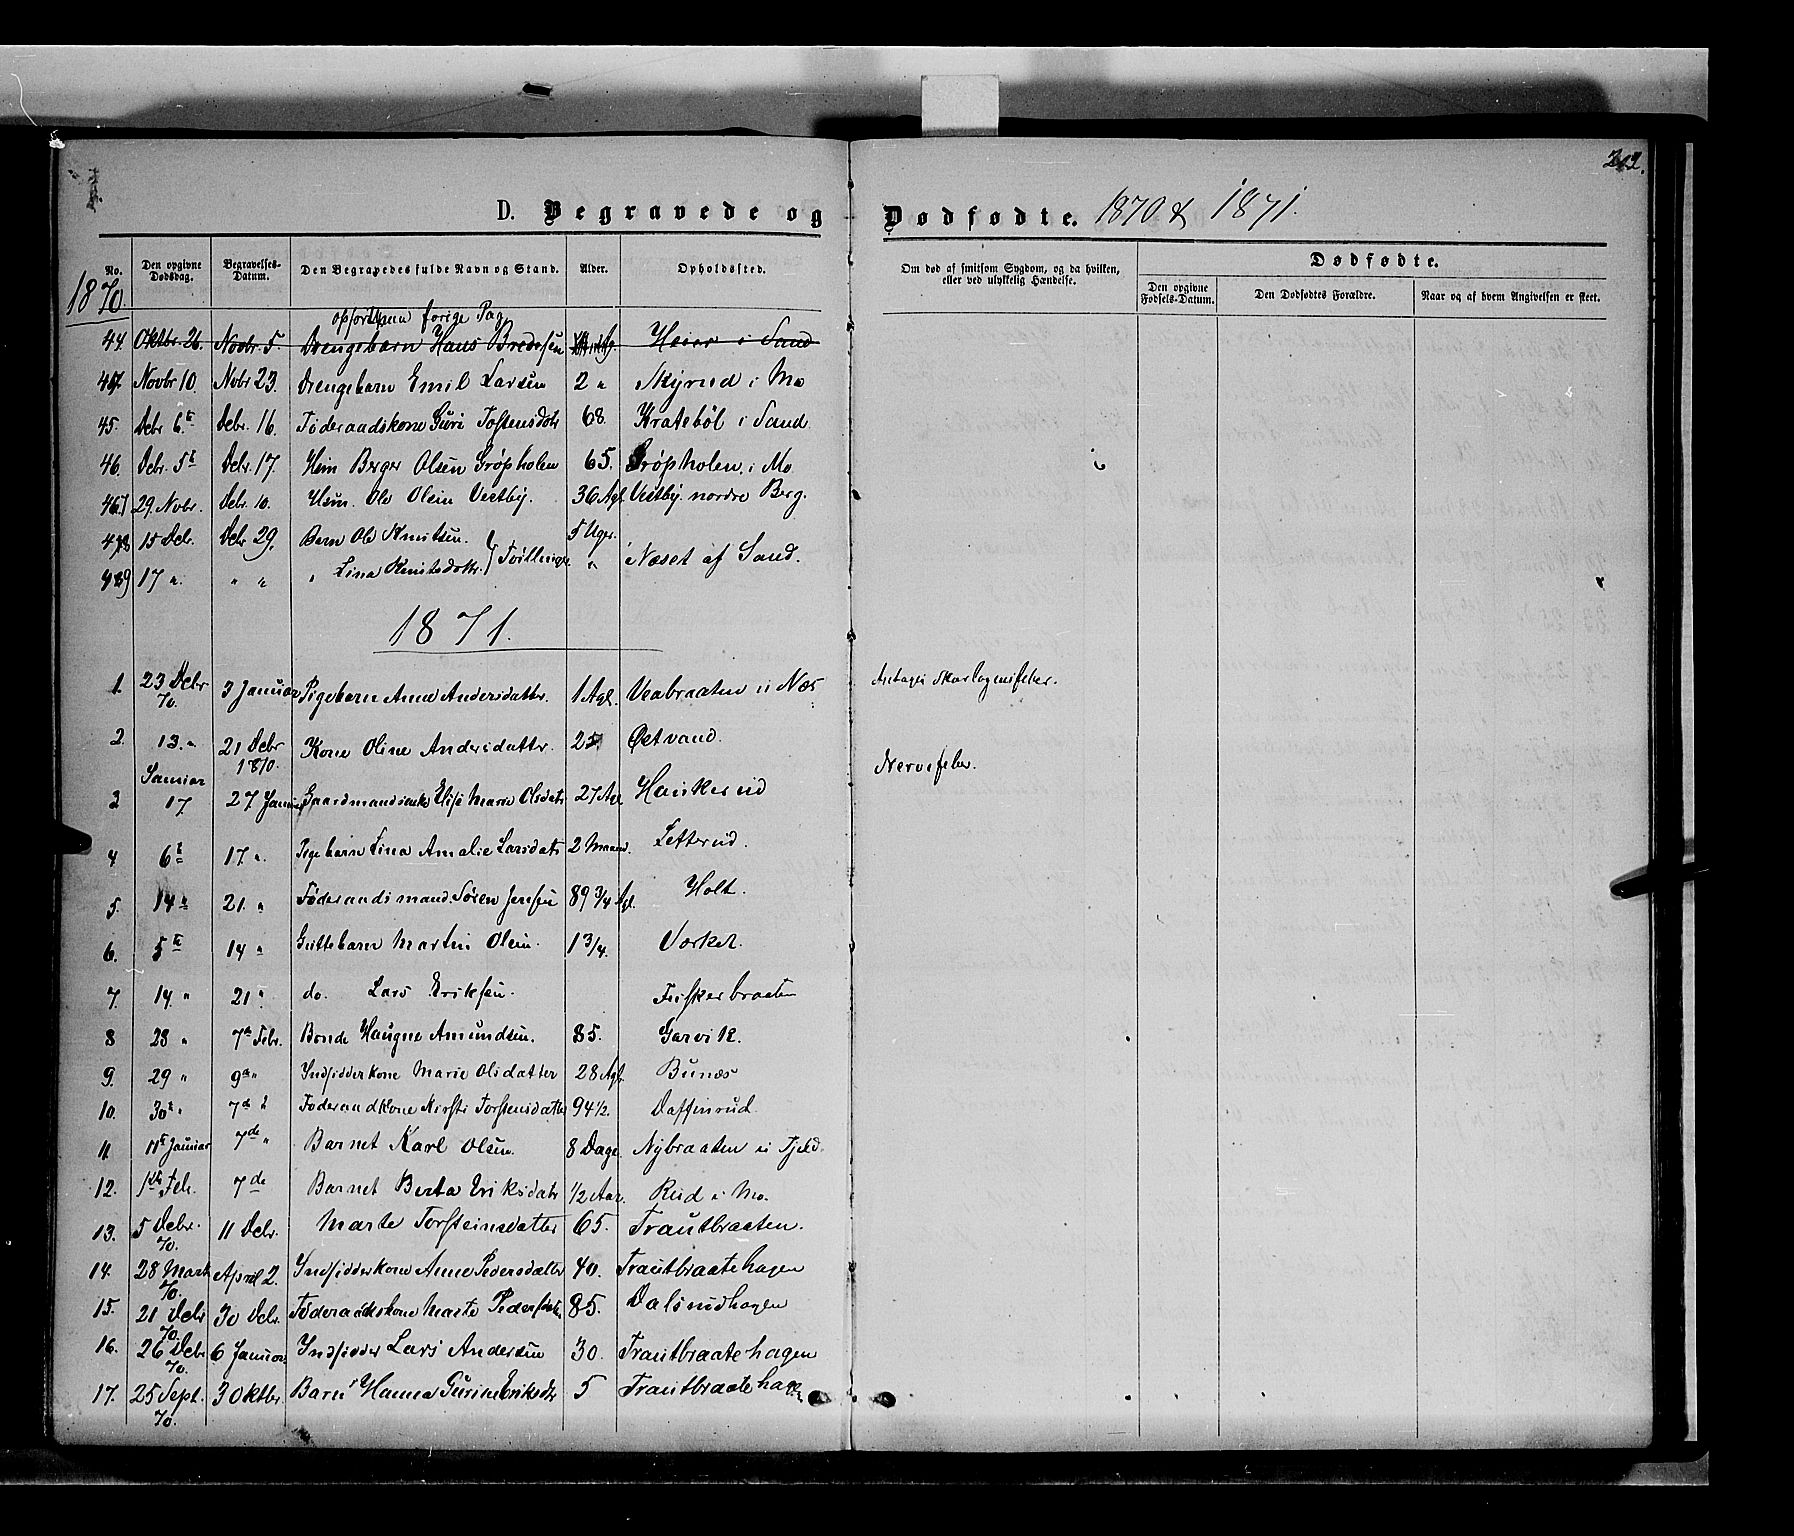 212.
D. Begravede og Dødfødte. 1870 & 1871.
No.
Den opgivne Dødsdag.
Begravelses-Datum.
Den Begravedes fulde Navn og Stand.
Alder.
Opholdssted.
Om død af smitsom Sygdom, og da hvilken, eller ved ulykkelig Hændelse.
Dødfødte.
Den opgivne Fødsels-Datum.
Den Dødfødtes Forældre.
Naar og af hvem Angivelsen er skeet.
1870.
forige Pag
44. Oktbr. 26. Novbr. 5. Drengebarn Hans Bredesen Heier i Sand
Novbr 10. Nvbr 23. Drengebarn Emil Larsen 2 " Skyrud i Mo
45. Debr 6te Debr. 16. Føderaadskone Guri Tostensdatr 68. Kratebøl i Sand
46. Debr. 5te Debr. 17 Hum Berger Olsen Grøpholen 65. Grøpholen i Mo
29. Nvbr. Debr. 10. Hum. Ole Olsen Vestby. 36 Agl. Vestby nordre Berg.
15 Debr. Debr 29. Barn Ole Knutsen. 5 Uger.
17 ". " " " Lina Knutsdattr. } Tvillinger " Næset af Sand.
1871.
1. 23 Debr 70. 3 Januar Pigebarn Anne Andersdatter. 1 Agl. Veabraaten i Næs Antages Skarlagensfeber.
2. 13. " 21 Debr 1870. Kone Oline Andersdatter. Østvand.
3 Januar 17 27 Januar Gaardmandsenke Elise Marie Olsdatr 27 Agl. Hankerud Nervefeber.
4 6te 17 ". Pigebarn Lina Amalie Larsdatr 2 Maand. Letterud.
5. 14 " 21. " Føderaadsmand Søren Jensen 89 3/4 Agl. Holt.
6. 5te 14 " Guttebarn Martin Olsen. 1 3/4. Vorket.
7. 14. " 21 " do. Lars Eriksen. Fiskerbraaten
8 28 " 7de Febr. Bonde Haugne Amundsen. 85. Garvik.
9. 29 " 9de " Indsidderkone Marie Olsdatter 28 Agl. Bunæs
10. 30te " 7de " Føderaadkone Kirsti Torstensdatter 94 1/2. Daffinrud.
11 11te Januar 7de " Barnet Karl Olsen. 8 Dage Nybraaten i Fjeld.
12. 1ste Feb. 7de Barnet Berta Eriksdatr 1/2 Aar. Rud i Mo.
13. 5 Debr. 70. 11 Debr. Marte Torsteinsdatter 65. Trautbraaten.
14. 28 Marts 70. April 2. Indsidderkone Anne Pedersdatter 40. Trautbraatehagen
15. 21 Debr 70. 30 Debr. Føderaadskone Marte Pedersdatr 85. Dalsrudhagen
16. 26 Debr 70. 6 Januar Indsidder Lars Andersen 30. Trautbraatehagen
17. 25 Sept. 70. 3 Oktbr. Barn Hanna Gurine Eriksdr 5 Trautbraatehagen